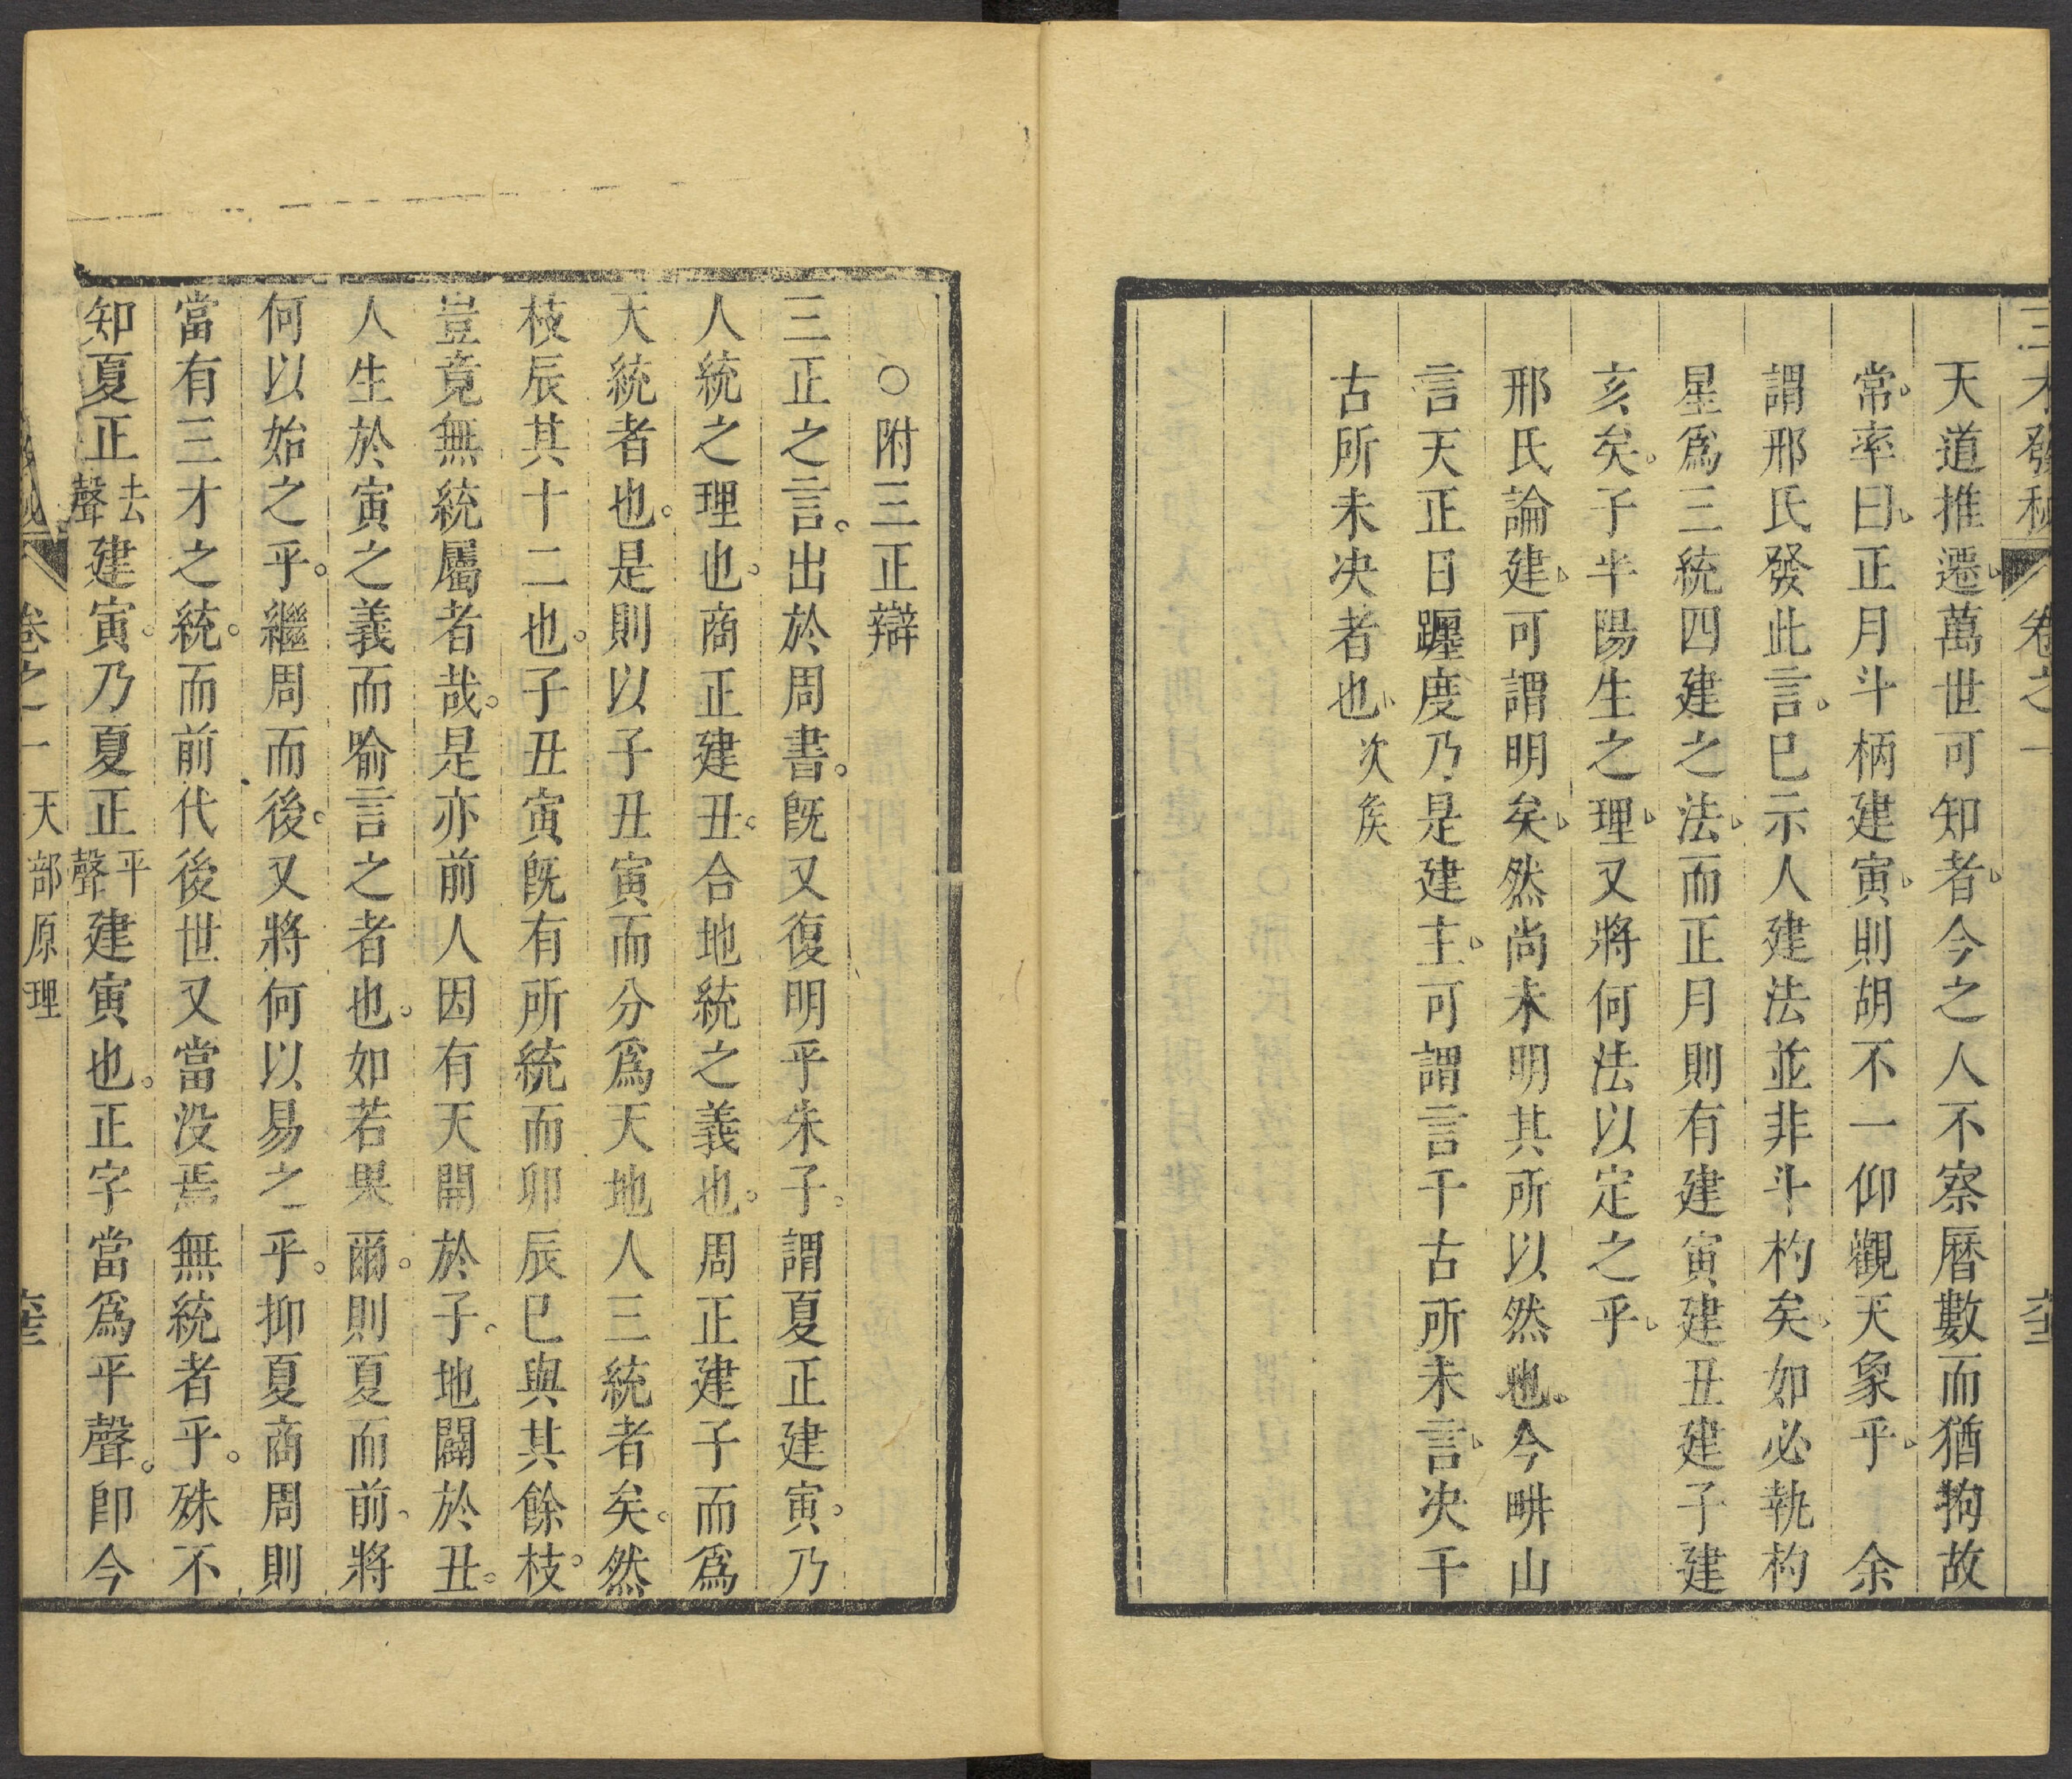 三才發秘 卷之一
天道推遷萬世可知者今之人不察曆數而猶拘故
常率曰正月斗柄建寅則胡不一仰觀天象乎 余
謂邢氏發此言已示人建法並非斗杓矣如必執杓
星爲三統四建之法而正月則有建寅建丑建子建
亥矣子半陽生之理又將何法以定之乎
邢氏論建可謂明矣然尚未明其所以然也今畊山
言天正日躔度乃是建主可謂言千古所未言决千
古所未决者也次矦
○附三正辯
三正之言出於周書旣又復明乎朱子謂夏正建寅乃
人統之理也商正建丑合地統之義也周正建子而爲
天統者也是則以子丑寅而分爲天地人三統者矣然
枝辰其十二也子丑寅旣有所統而卯辰巳與其餘枝
豈竟無統屬者哉是亦前人因有天開於子地闢於丑
人生於寅之義而喻言之者也如若果爾則夏而前將
何以始之乎繼周而後又將何以易之乎抑夏商周則
當有三才之統而前代後世又當没焉無統者乎殊不
知夏正去聲建寅乃夏正平聲建寅也正字當爲平聲卽今
卷之一 天部原理